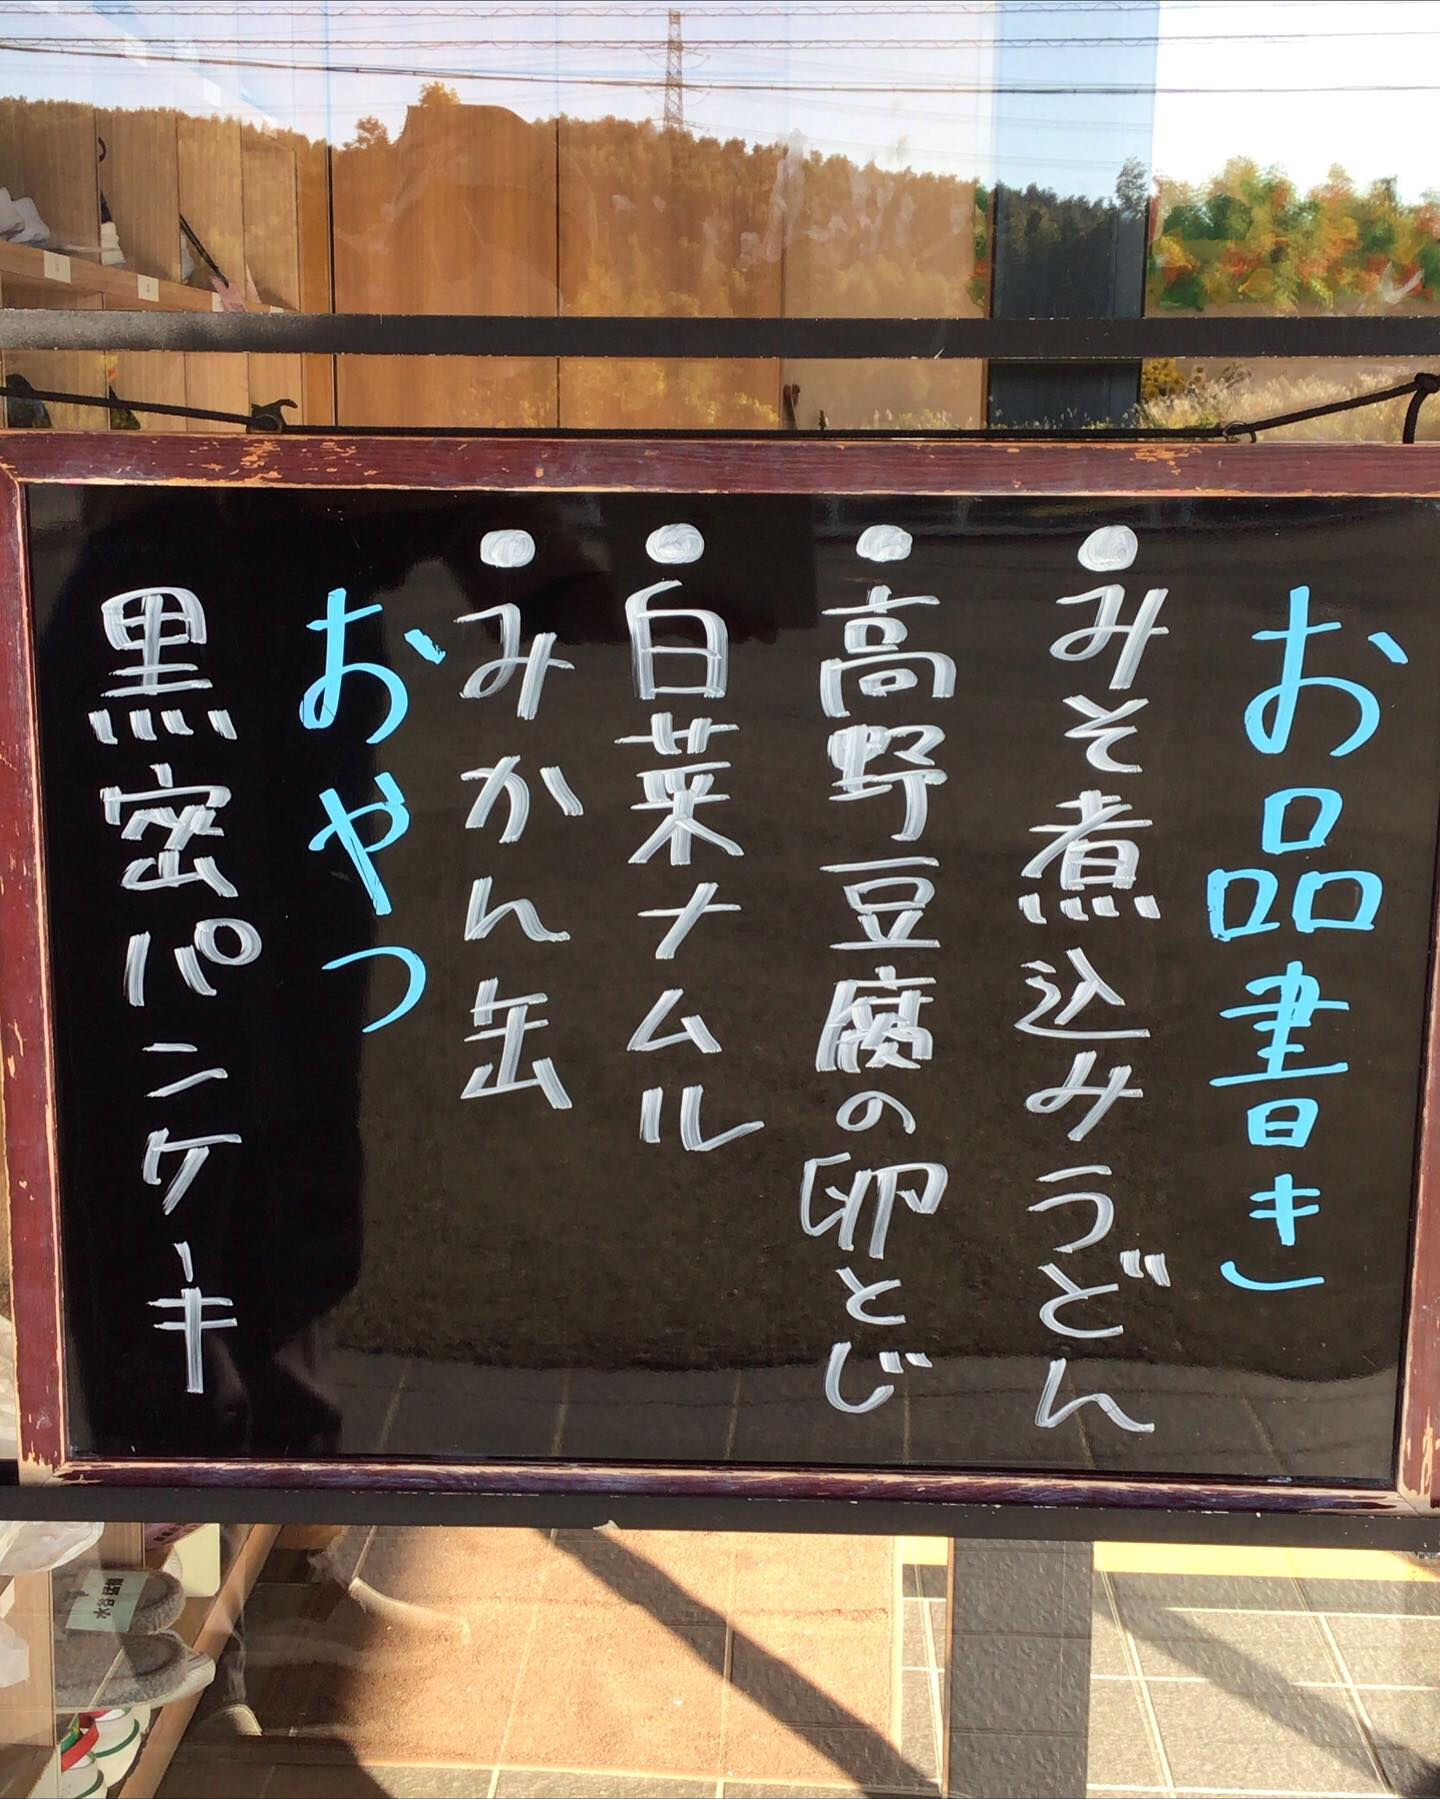 お品書き
・みそ煮込みうどん
・高野豆腐の卵とじ
・白菜ナムル
・みかん缶
おやつ
黒密パンケーキ